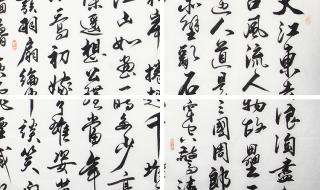 大江東去浪淘盡
古風流人物故壘
人道是三國周郎
赤壁亂石穿空驚濤
岸捲起千堆
江山如畫一時多少豪
遥想公瑾當年
喬初嫁了雄姿英
羽扇綸巾談笑